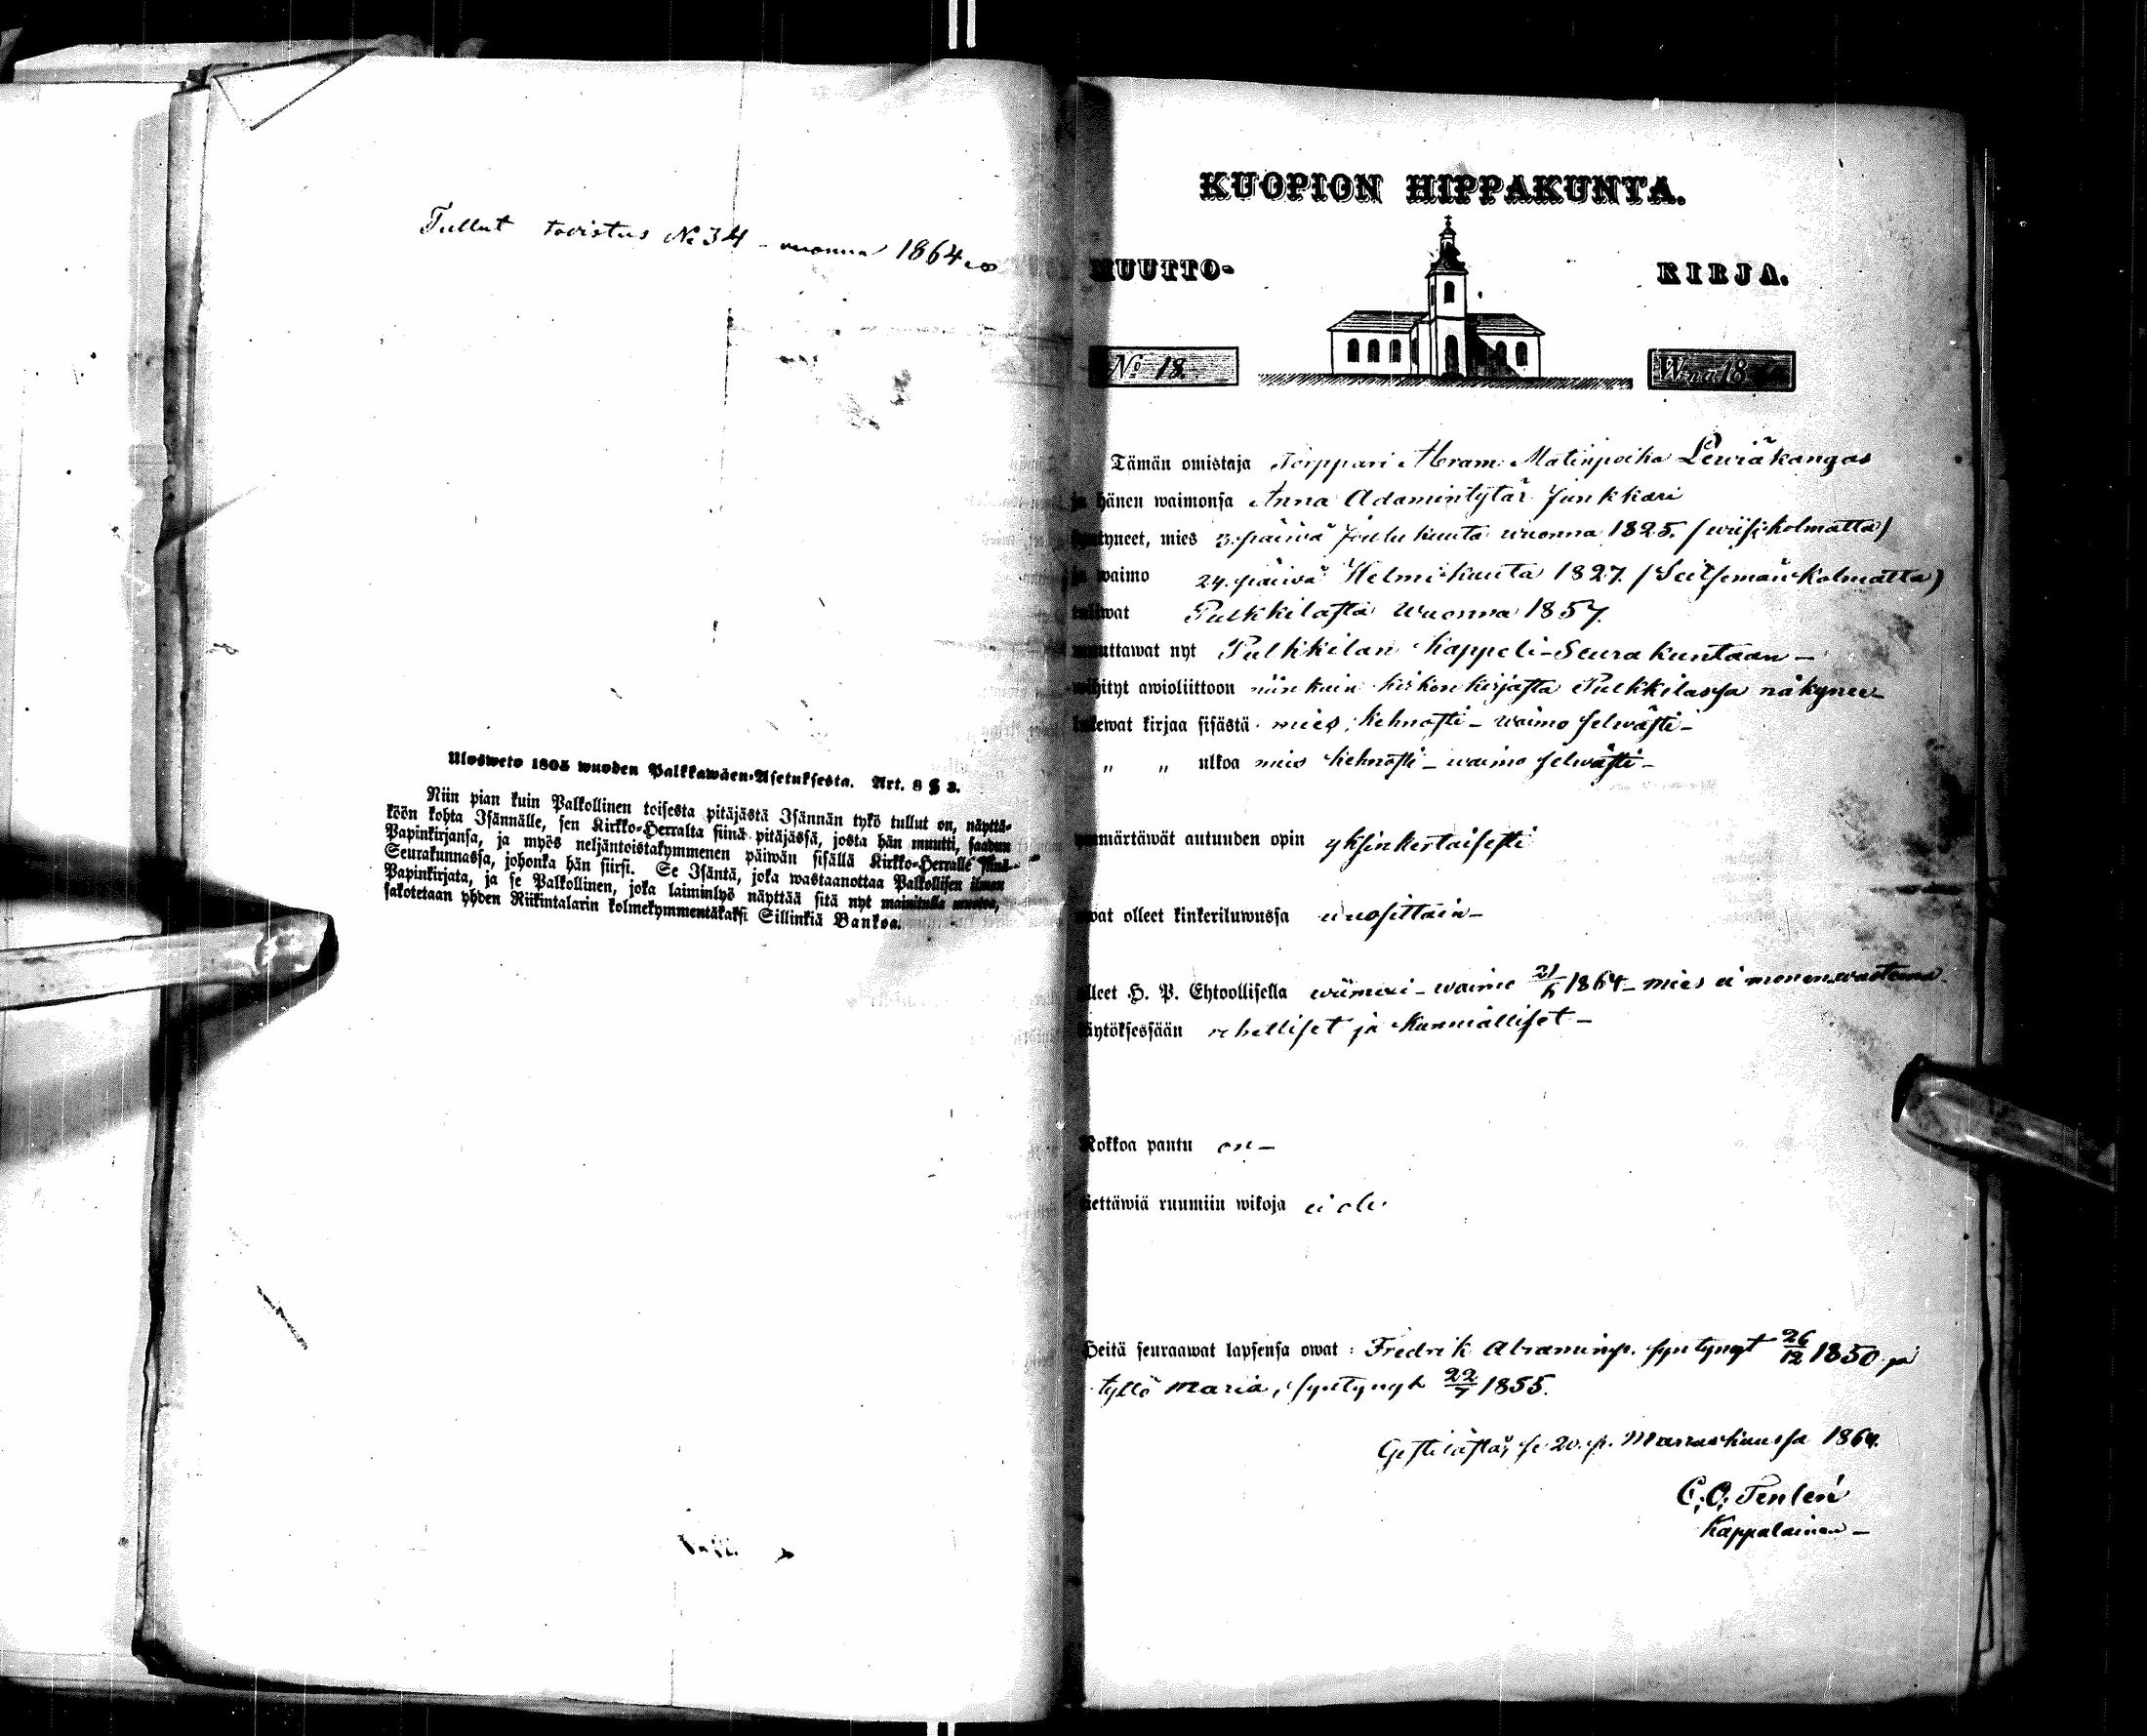 Tullut todistus No 34 - vuonna 1864.
Ulosweto 1805 wuoden Palkkawäen-Asetuksesta. Art. 8 § 3.
Niin pian kuin Palkollinen toisesta pitäjästä Isännän tykö tullut on, näyttä-
köön kohta Isännälle, sen Kirkko-Herralta siinä pitäjässä, josta hän muutti, saadun
Papinkirjansa, ja myös neljäntoistakymmenen päiwän sisällä Kirkko-Herralle siinä
Seurakunnassa, johonka hän siirsi. Se Isäntä, joka wastaanottaa Palkollisen ilman
Papinkirjata, ja se Palkollinen, joka laiminlyö näyttää sitä nyt mainitulla muotoa,
sakotetaan yhden Riikintalarin kolmekymmentäkaksi Sillinkiä Bankoa.
KUOPION HIPPAKUNTA.
MUUTTO-
KIRJA.
No 18.
W:na 18
Tämän omistaja Torppari Abram Matinpoika Lewiäkangas
ja hänen waimonsa Anna Adamintytär Junkkari
syntyneet, mies 3. päiwä Joulukuuta wuonna 1825. (wiisikolmatta)
ja waimo 24. päiwä Helmikuuta 1827. (Seitsemänkolmatta)
tuliwat Pulkkilasta Wuonna 1857.
muuttawat nyt Pulkkilan Kappeli-Seurakuntaan -
wihityt awioliittoon niinkuin kirkonkirjasta Pulkkilassa näkynee
lukewat kirjaa sisästä mies, kehnosti - waimo selwästi -
" " ulkoa mies kehnosti - waimo selwästi -
ymmärtäwät autuuden opin yksinkertaisesti
owat olleet kinkeriluwussa wuosittain -
olleet H. P. Ehtoollisella wiimexi - waimo 21/6 1864 - mies ei monen wuoteen
käytöksessään rehelliset ja kunnialliset -
Rokkoa pantu on -
tiettäwiä ruumiin wikoja ei ole.
Heitä seuraawat lapsensa owat : Fredrik Abraminp. syntynyt 26/12 1850 ja
tyttö Maria, syntynyt 22/7 1855.
Gestilästä, se 20. p. Marraskuussa 1864.
C. O. Tenlén
Kappalainen -